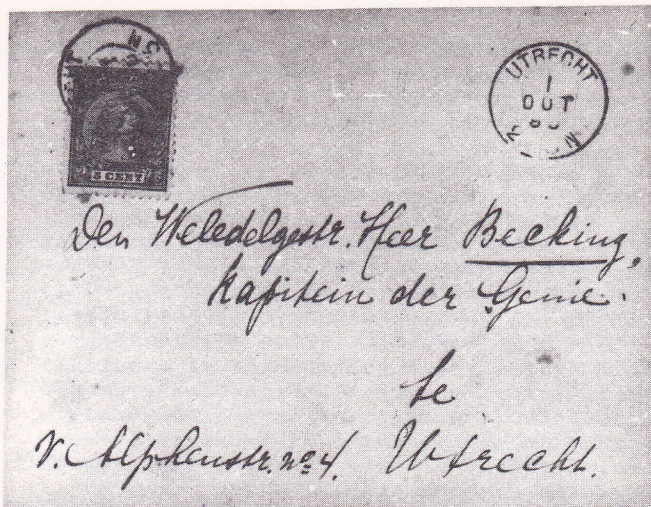 UTRECHT
1
OCT
5 CENT
Den Weledelgestr. Heer Becking,
Kapitein der Genie.
te
v. Alphenstr. no 4. Utrecht.